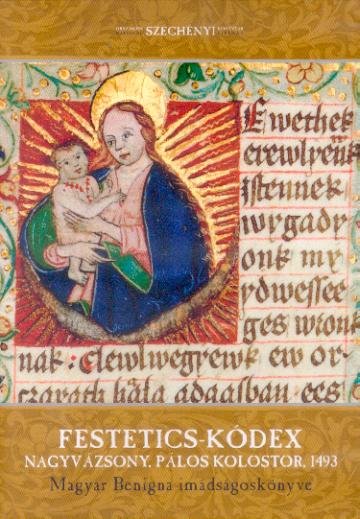 SZÉCHÉNYI
Ewethek
erewlyenk
istennek
wygady
onk my
ydwessee
ges wronk
nak : elewlwegyewk ew or
hala adaasban ees
FESTETICS-KÓDEX
NAGYVÁZSONY, PÁLOS KOLOSTOR, 1493
Magyar Benigna imádságoskönyve